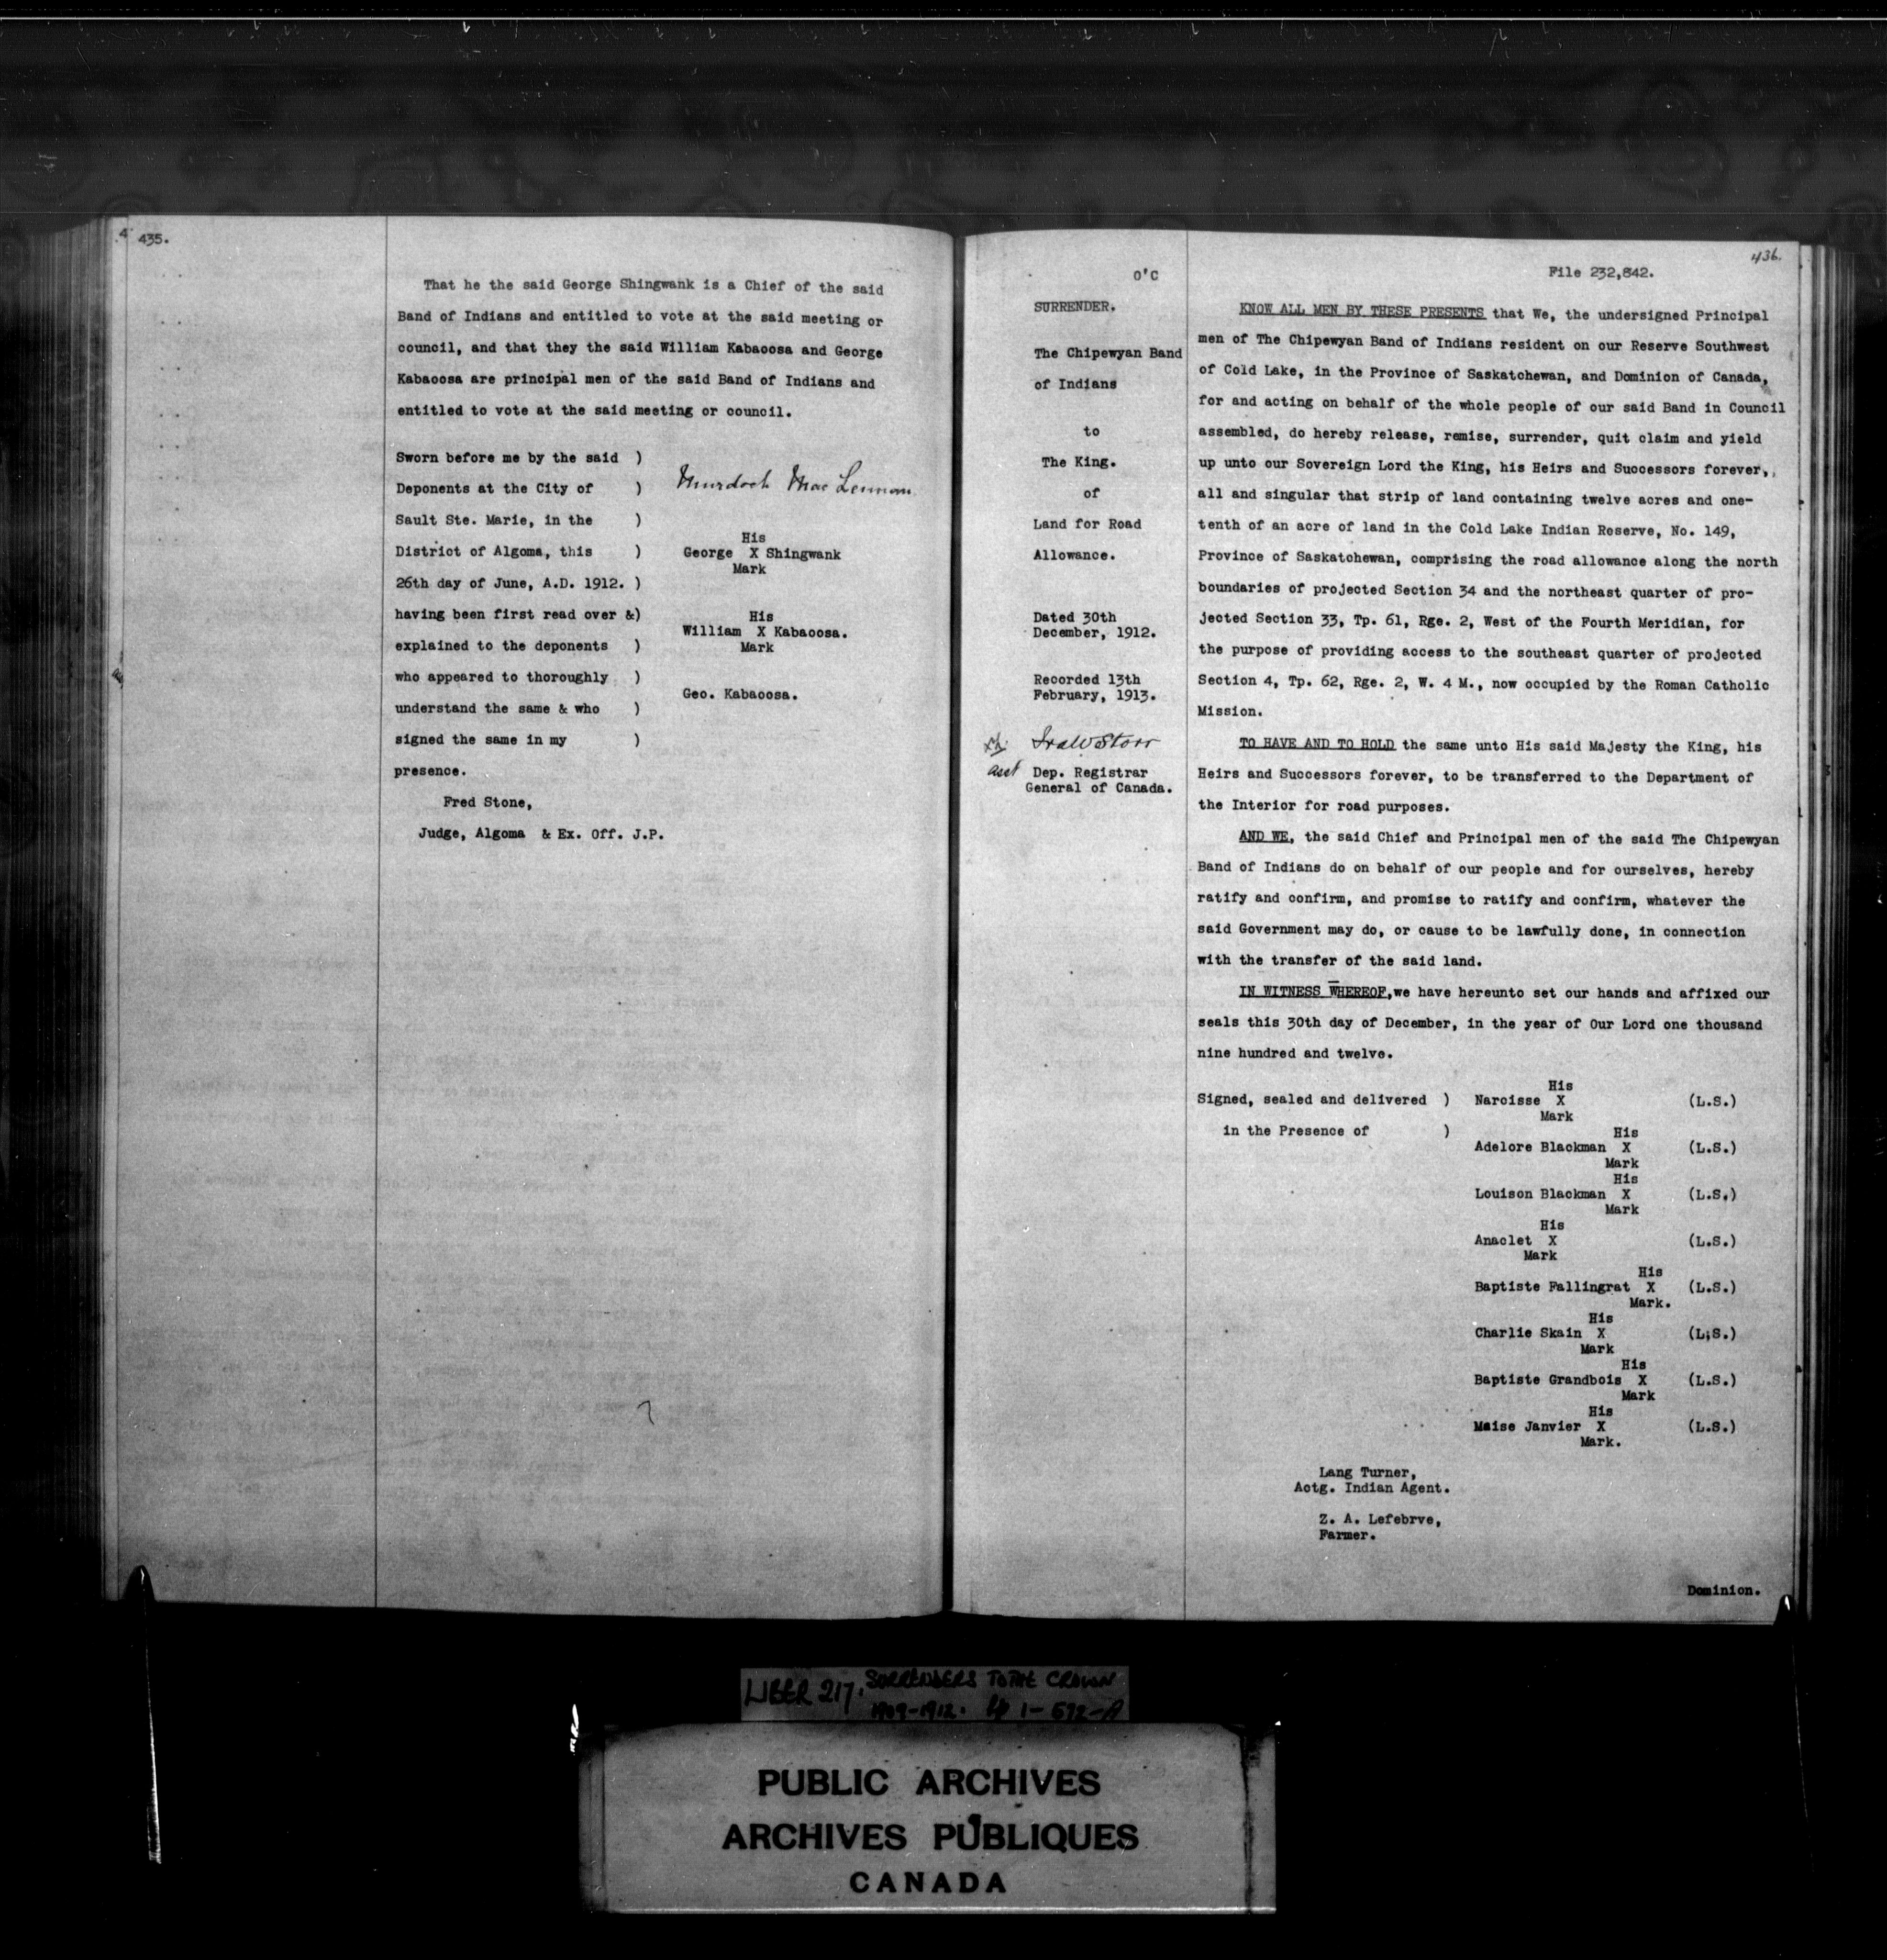 435.
That he the said George Shingwank is a Chief of the said
Band of Indians and entitled to vote at the said meeting or
council, and that they the said William Kabaoosa and George
Kabaoosa are principal men of the said Band of Indians and
entitled to vote at the said meeting or council.
Sworn before me by the said )
Deponents at the City of )
Sault Ste. Marie, in the )
District of Algoma, this )
26th day of June, A.D. 1912. )
having been first read over &)
explained to the deponents )
who appeared to thoroughly )
understand the same & who )
signed the same in my )
presence.
Murdoch MacLennan
His
George X Shingwank
Mark
His
William X Kabaoosa.
Mark
Geo. Kabaoosa.
Fred Stone,
Judge, Algoma & Ex. Off. J.P.
436.
O'C
File 232,842.
SURRENDER.
The Chipewyan Band
of Indians
to
The King.
of
Land for Road
Allowance.
Dated 30th
December, 1912.
Recorded 13th
February, 1913.
Ira W Storr
asst Dep. Registrar
General of Canada.
KNOW ALL MEN BY THESE PRESENTS that We, the undersigned Principal
men of The Chipewyan Band of Indians resident on our Reserve Southwest
of Cold Lake, in the Province of Saskatchewan, and Dominion of Canada,
for and acting on behalf of the whole people of our said Band in Council
assembled, do hereby release, remise, surrender, quit claim and yield
up unto our Sovereign Lord the King, his Heirs and Successors forever,
all and singular that strip of land containing twelve acres and one-
tenth of an acre of land in the Cold Lake Indian Reserve, No. 149,
Province of Saskatchewan, comprising the road allowance along the north
boundaries of projected Section 34 and the northeast quarter of pro-
jected Section 33, Tp. 61, Rge. 2, West of the Fourth Meridian, for
the purpose of providing access to the southeast quarter of projected
Section 4, Tp. 62, Rge. 2, W. 4 M., now occupied by the Roman Catholic
Mission.
TO HAVE AND TO HOLD the same unto His said Majesty the King, his
Heirs and Successors forever, to be transferred to the Department of
the Interior for road purposes.
AND WE, the said Chief and Principal men of the said The Chipewyan
Band of Indians do on behalf of our people and for ourselves, hereby
ratify and confirm, and promise to ratify and confirm, whatever the
said Government may do, or cause to be lawfully done, in connection
with the transfer of the said land.
IN WITNESS WHEREOF,we have hereunto set our hands and affixed our
seals this 30th day of December, in the year of Our Lord one thousand
nine hundred and twelve.
Signed, sealed and delivered )
in the Presence of )
His
Narcisse X (L.S.)
Mark
His
Adelore Blackman X (L.S.)
Mark
His
Louison Blackman X (L.S.)
Mark
His
Anaclet X (L.S.)
Mark
His
Baptiste Fallingrat X (L.S.)
Mark.
His
Charlie Skain X (L;S.)
Mark
His
Baptiste Grandbois X (L.S.)
Mark
His
Maise Janvier X (L.S.)
Mark.
Lang Turner,
Actg. Indian Agent.
Z. A. Lefebrve,
Farmer.
Dominion.
LIBER 217. SURRENDERS TO THE CROWN
1909-1912. pp 1-592-A
PUBLIC ARCHIVES
ARCHIVES PUBLIQUES
CANADA